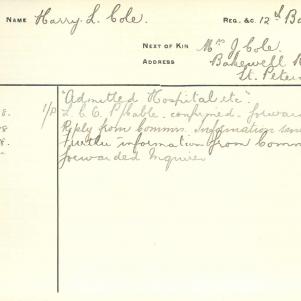 NAME Harry L. Cole. REG. &C. 12th Ba
NEXT OF KIN Mrs J Cole.
ADDRESS Bakewell R
St. Peters
"Admitted Hospital etc"
8. 1/P L.C.C. P/Cable. confirmed. forward
08 Reply from Comms. Information sen
8. Further information from Comm
forwarded Inquirer